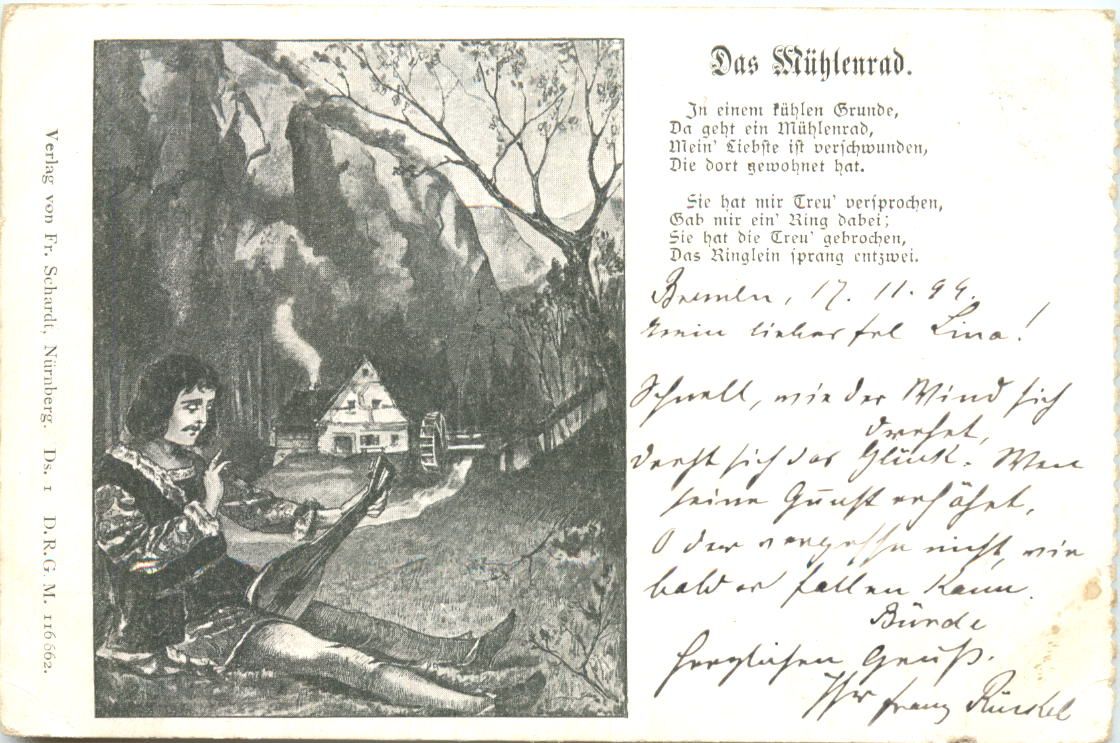 Das Mühlenrad.
In einem kühlen Grunde,
Da geht ein Mühlenrad,
Mein' Liebste ist verschwunden,
Die dort gewohnet hat.
Sie hat mir Treu' versprochen,
Gab mir ein' Ring dabei;
Sie hat die Treu' gebrochen,
Das Ringlein sprang entzwei.
Bremen, 17. 11. 99.
Mein liebes Frl Lina!
Schnell, wie der Wind sich
drehet,
dreht sich das Glück. Wen
seine Gunst erhöhet,
O der vergesse nicht, wie
bald er fallen kann.
Bürde
Herzlichen Gruß.
Ihr Franz
Verlag von Fr. Schardt, Nürnberg. Ds. 1 D. R. G. M. 116662.